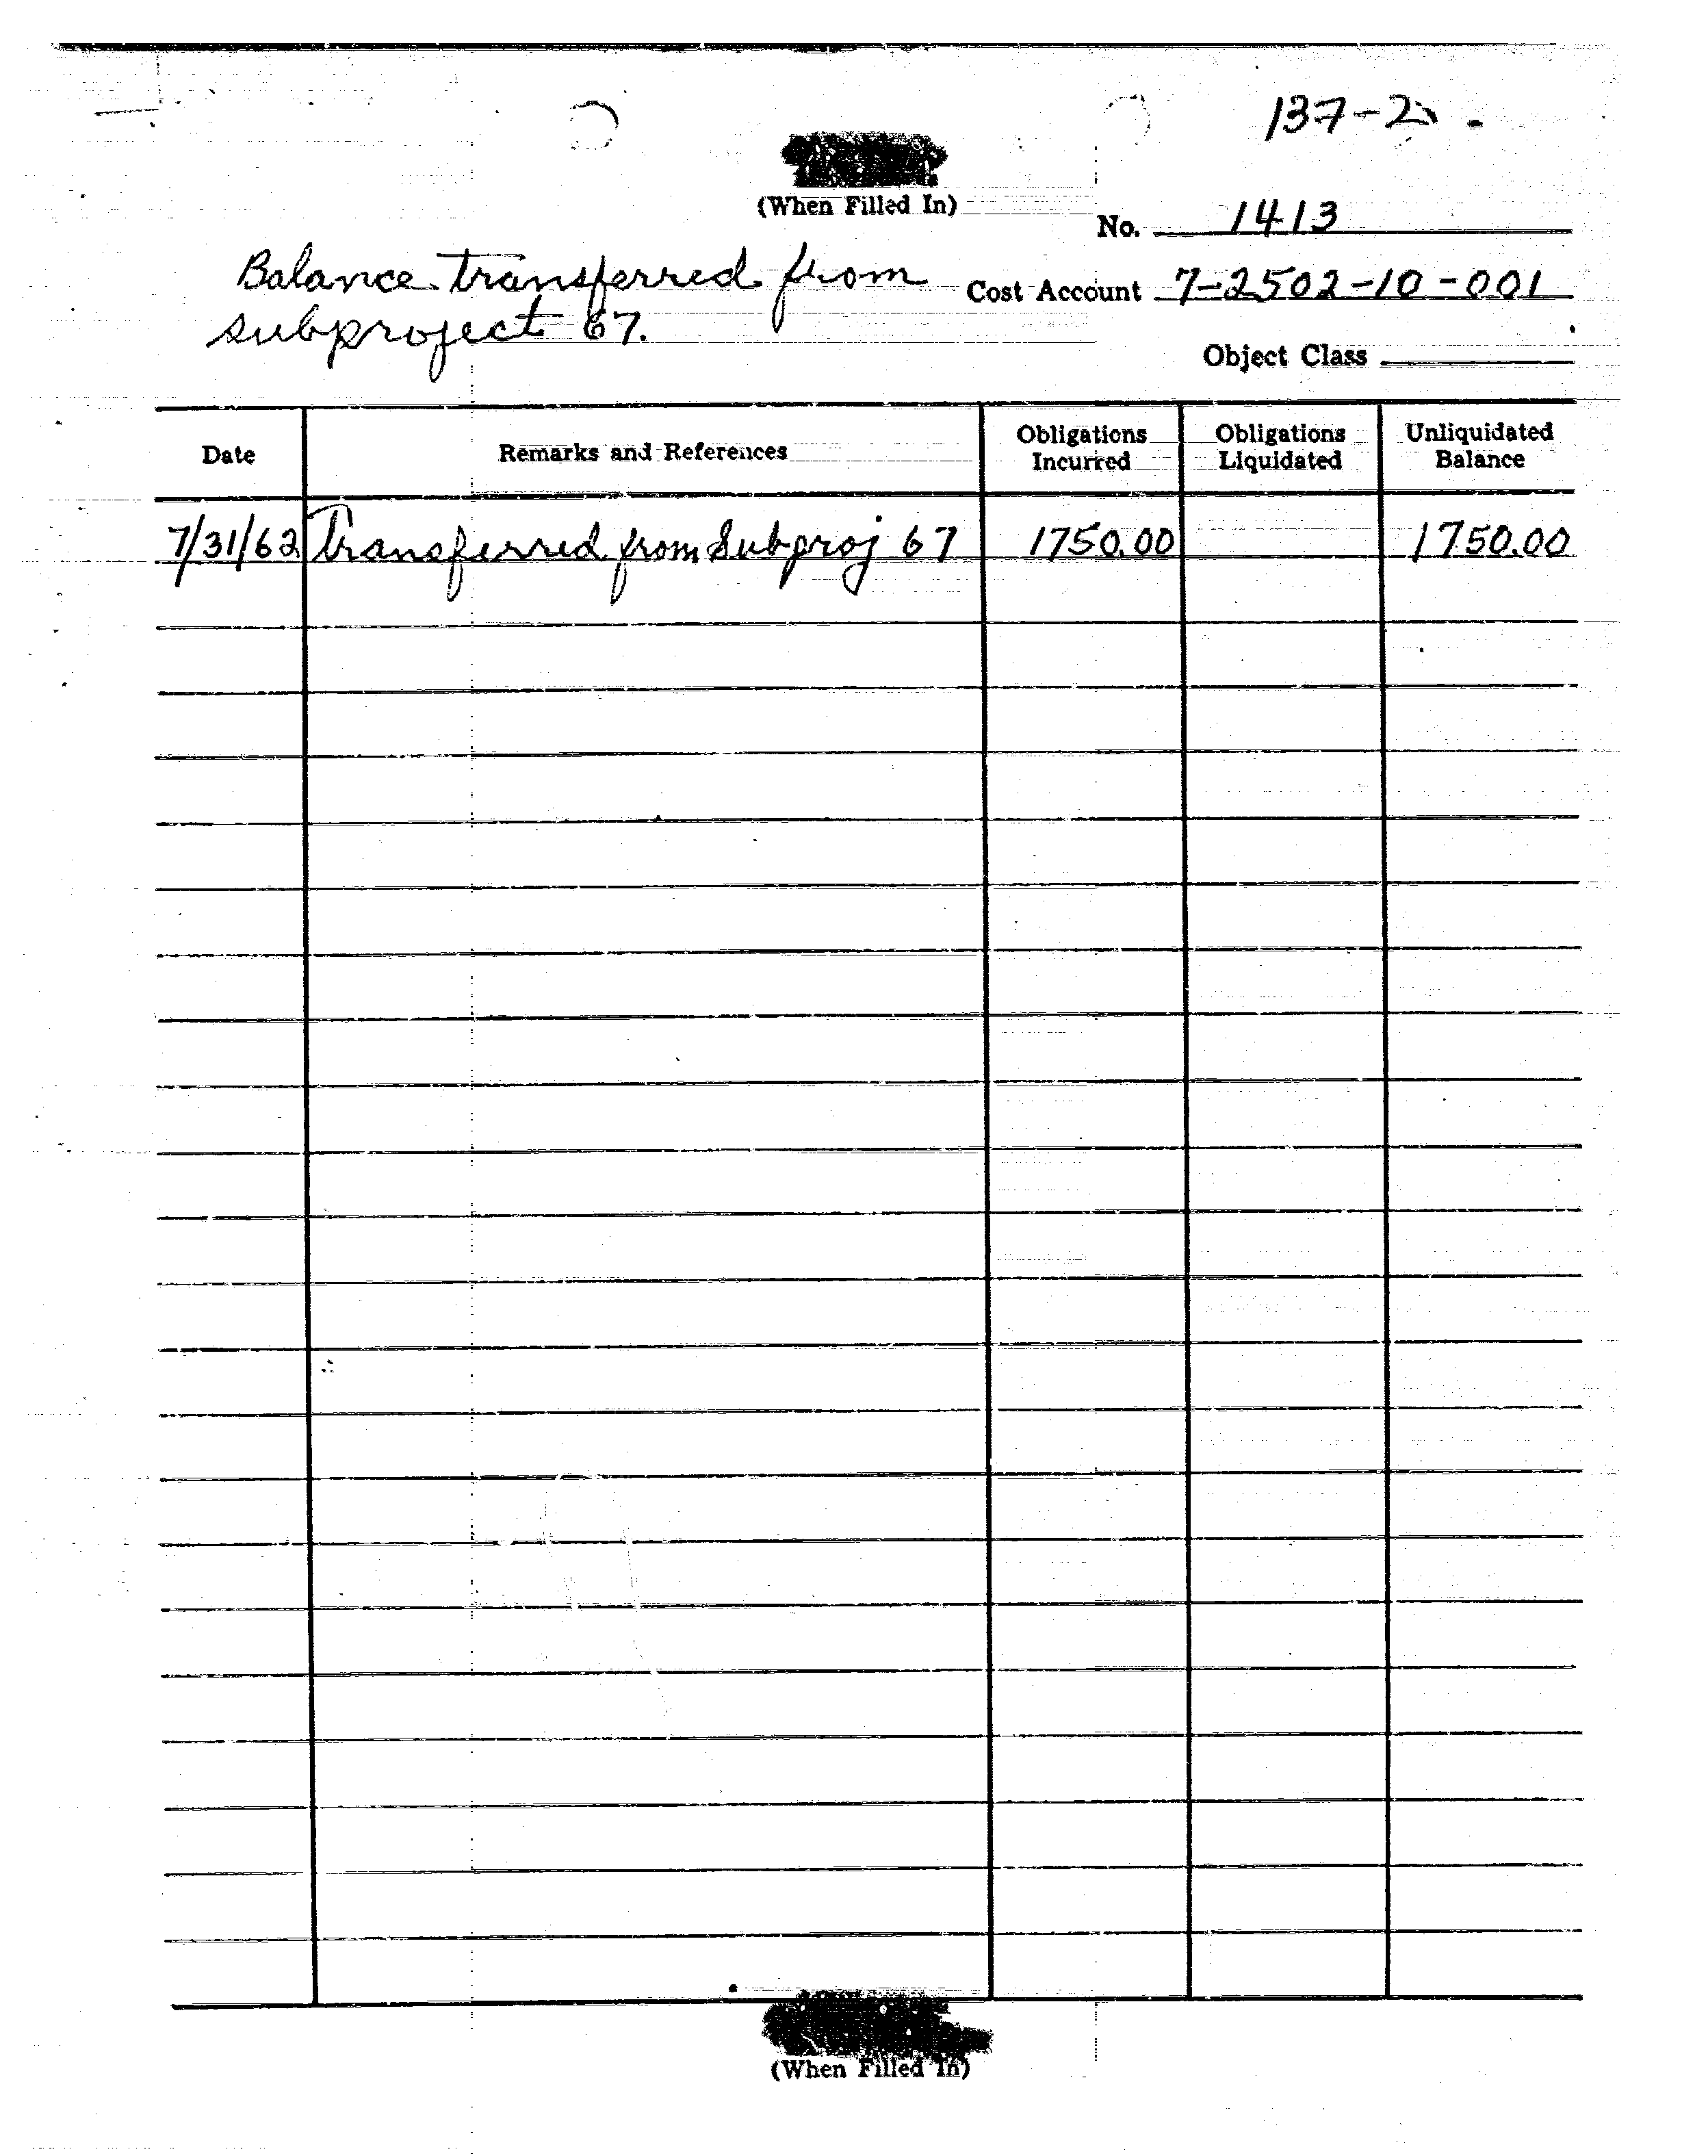 137-2
(When Filled In)
No. 1413
Balance transferred from
subproject 67.
Cost Account 7-2502-10-001
Object Class
Date Remarks and References Obligations Incurred Obligations Liquidated Unliquidated Balance
7/31/62 Transferred from Subproj 67 1750.00 1750.00
(When Filled In)